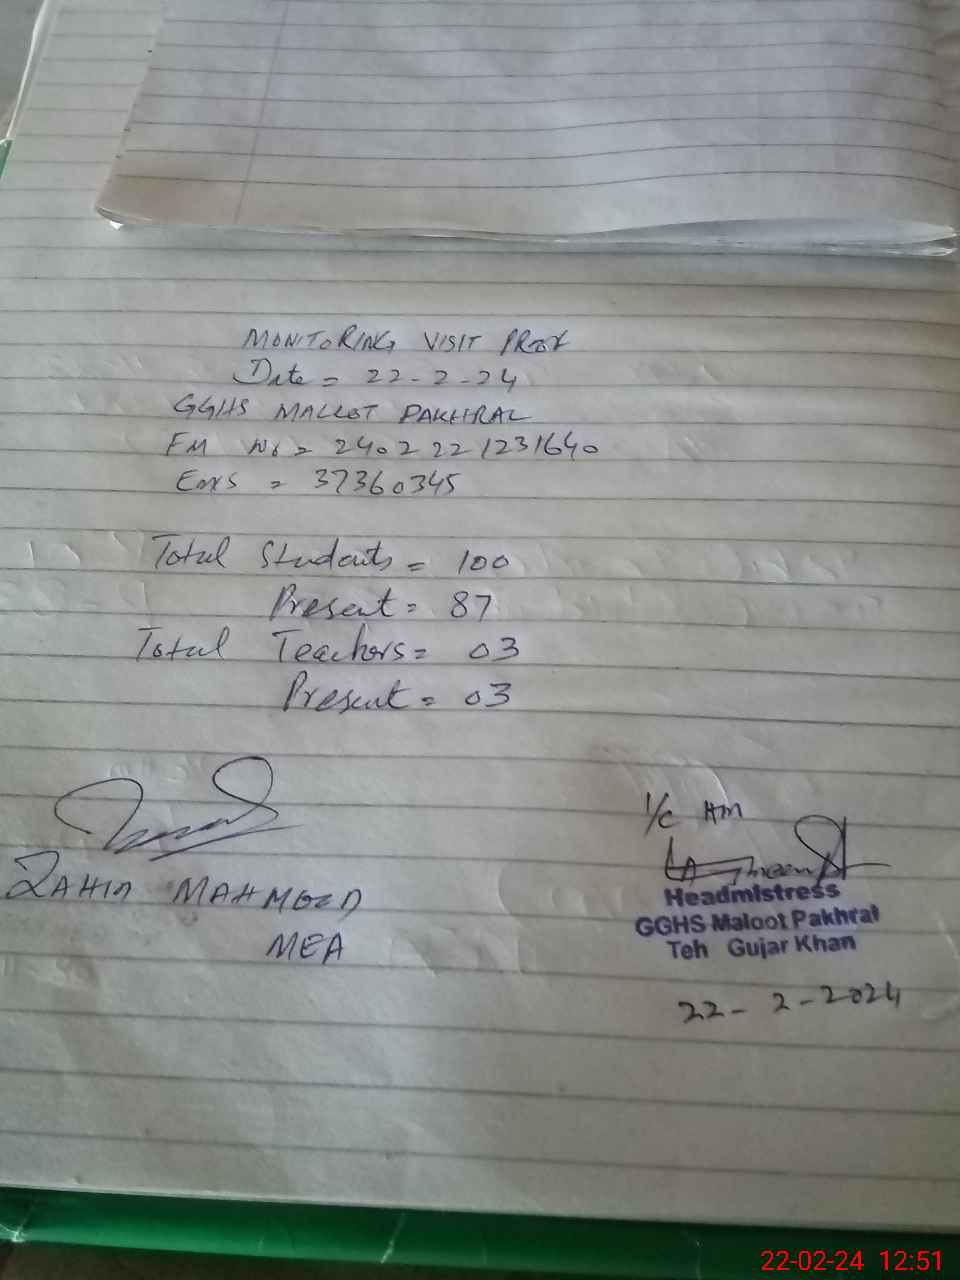 MONITORING VISIT PROOF
Date = 22-2-24
GGHS MALLOT PAKHRAL
FM No = 240222 1231640
EMIS = 37360345
Total Students = 100
Present = 87
Total Teachers = 03
Present = 03
ZAHID MAHMOOD
MEA
I/C HM
Headmistress
GGHS Maloot Pakhral
Teh Gujar Khan
22-2-2024
22-02-24 12:51